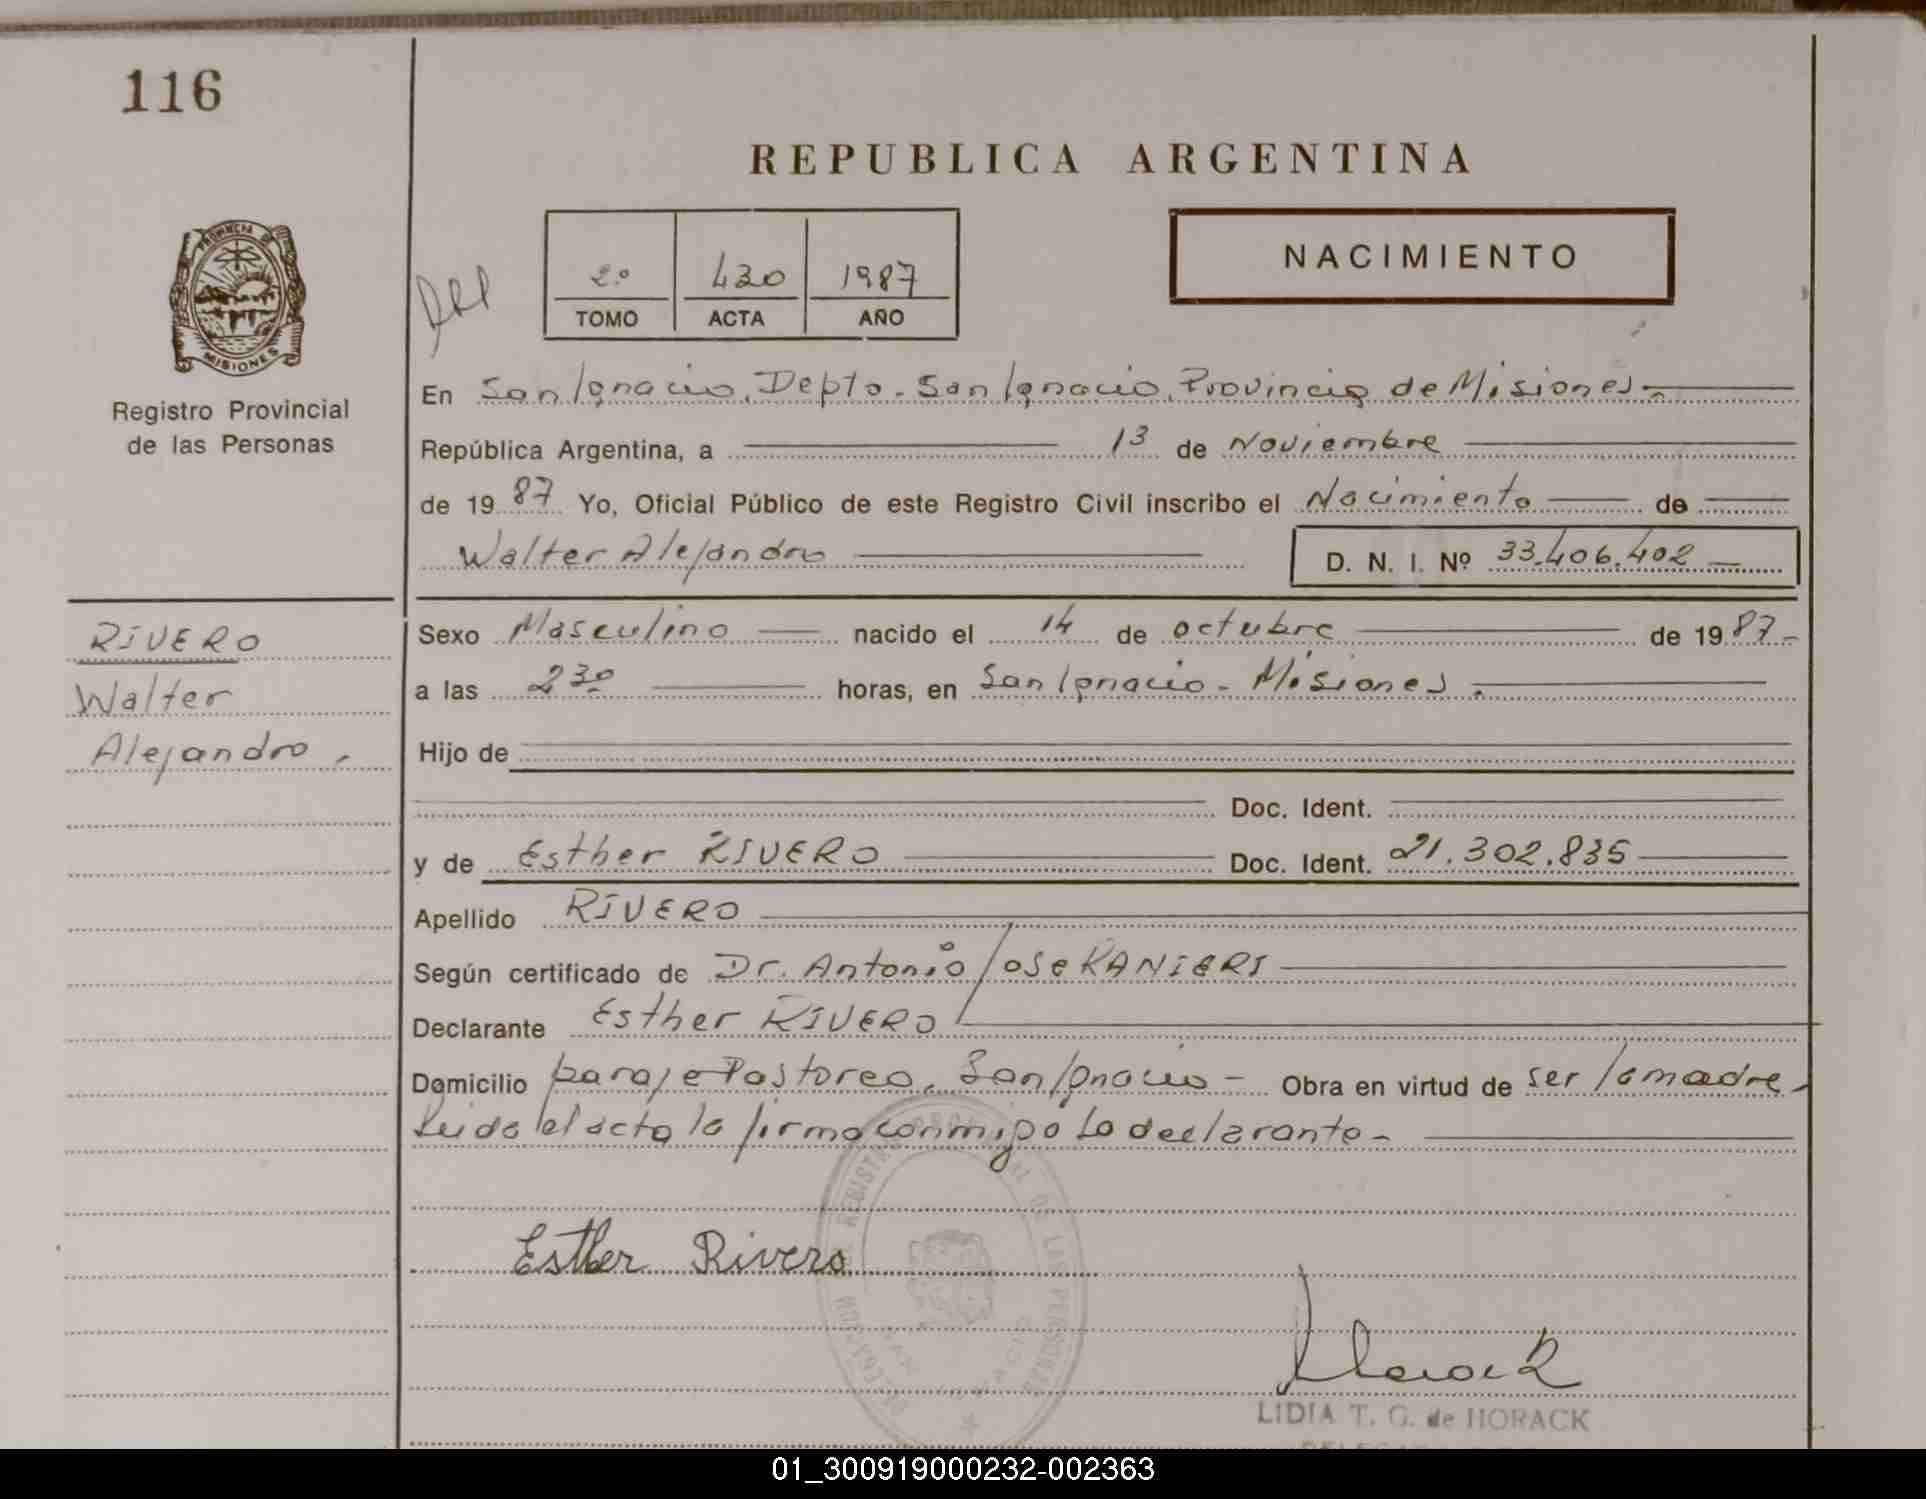 116
REPUBLICA ARGENTINA
NACIMIENTO
2º 430 1987
TOMO ACTA AÑO
PROVINCIA DE
MISIONES
Registro Provincial
de las Personas
En San Ignacio, Depto. San Ignacio, Provincia de Misiones.-
República Argentina, a 13 de Noviembre
de 1987 Yo, Oficial Público de este Registro Civil inscribo el Nacimiento de
Walter Alejandro D. N. I. Nº 33.406.402
RIVERO
Walter
Alejandro.
Sexo Masculino nacido el 14 de octubre de 1987-
a las 2³⁰ horas, en San Ignacio - Misiones.
Hijo de
Doc. Ident.
y de Esther RIVERO Doc. Ident. 21.302.835
Apellido RIVERO
Según certificado de Dr. Antonio Jose RANIERI
Declarante Esther RIVERO
Domicilio paraje Pastoreo, San Ignacio - Obra en virtud de ser la madre-
Leida el acta la firma conmigo La declarante-
Esther Rivero
LIDIA T. G. de HORACK
01_300919000232-002363